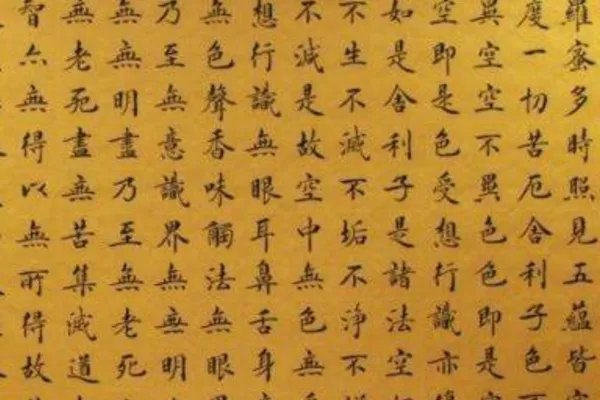 羅蜜多時照見五蘊皆空
度一切苦厄舍利子色不
異空空不異色色即是空
空即是色受想行識亦復
如是舍利子是諸法空相
不生不滅不垢不淨不增
不減是故空中無色無
想行識無眼耳鼻舌身意
無色聲香味觸法無眼界
乃至無意識界無無明
無無明盡乃至無老死
無老死盡無苦集滅道
智亦無得以無所得故